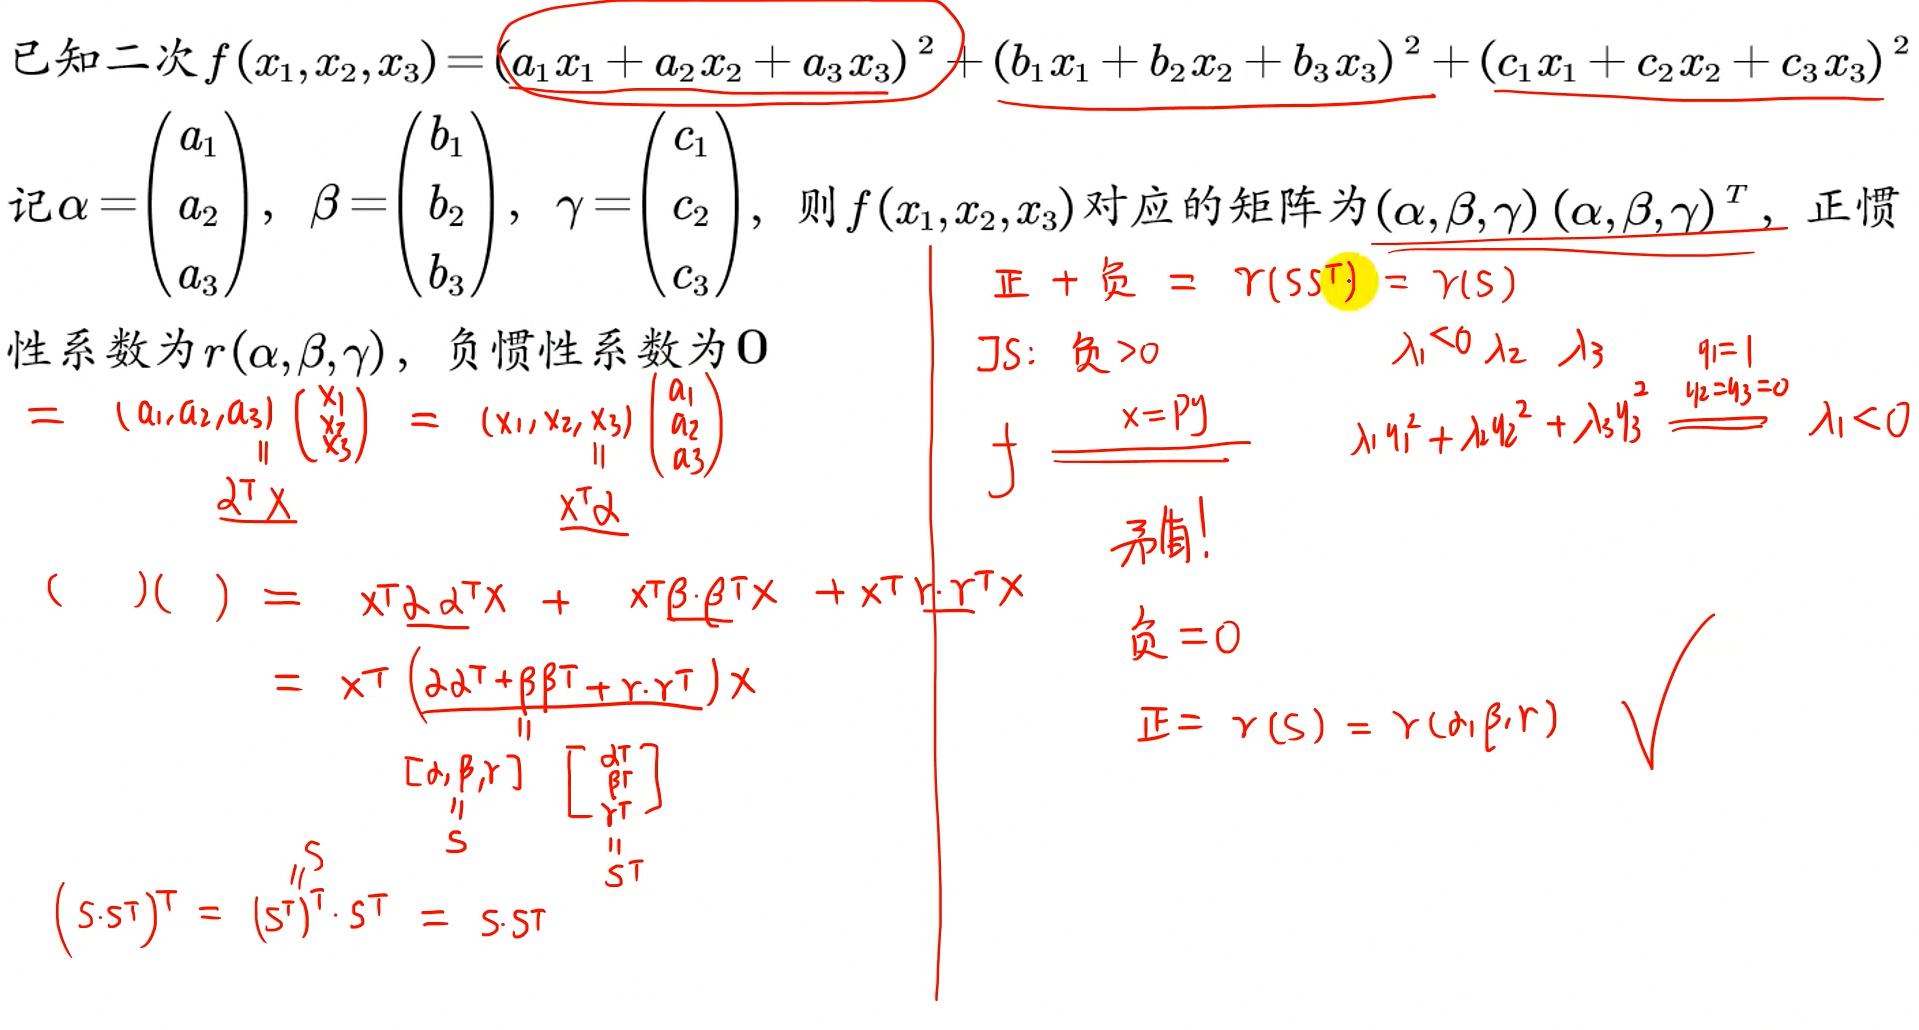 已知二次f(x₁,x₂,x₃)=(a₁x₁+a₂x₂+a₃x₃)²+(b₁x₁+b₂x₂+b₃x₃)²+(c₁x₁+c₂x₂+c₃x₃)²
记α=(a₁ a₂ a₃), β=(b₁ b₂ b₃), γ=(c₁ c₂ c₃), 则f(x₁,x₂,x₃)对应的矩阵为(α,β,γ)(α,β,γ)ᵀ, 正惯
性系数为r(α,β,γ), 负惯性系数为0
= (a₁,a₂,a₃)(x₁ x₂ x₃) = (x₁,x₂,x₃)(a₁ a₂ a₃)
|| ||
αᵀx xᵀα
( )( ) = xᵀααᵀx + xᵀβ·βᵀx + xᵀr·rᵀx
= xᵀ(ααᵀ+ββᵀ+r·rᵀ)x
||
[α,β,r] [αᵀ βᵀ rᵀ]
|| ||
S Sᵀ
S
||
(S·Sᵀ)ᵀ = (Sᵀ)ᵀ·Sᵀ = S·Sᵀ
正 + 负 = r(SSᵀ) = r(S)
JS: 负>0 λ₁<0 λ₂ λ₃ y₁=1
f x=py λ₁y₁²+λ₂y₂²+λ₃y₃² y₂=y₃=0 λ₁<0
矛盾!
负=0
正= r(S) = r(α,β,r)